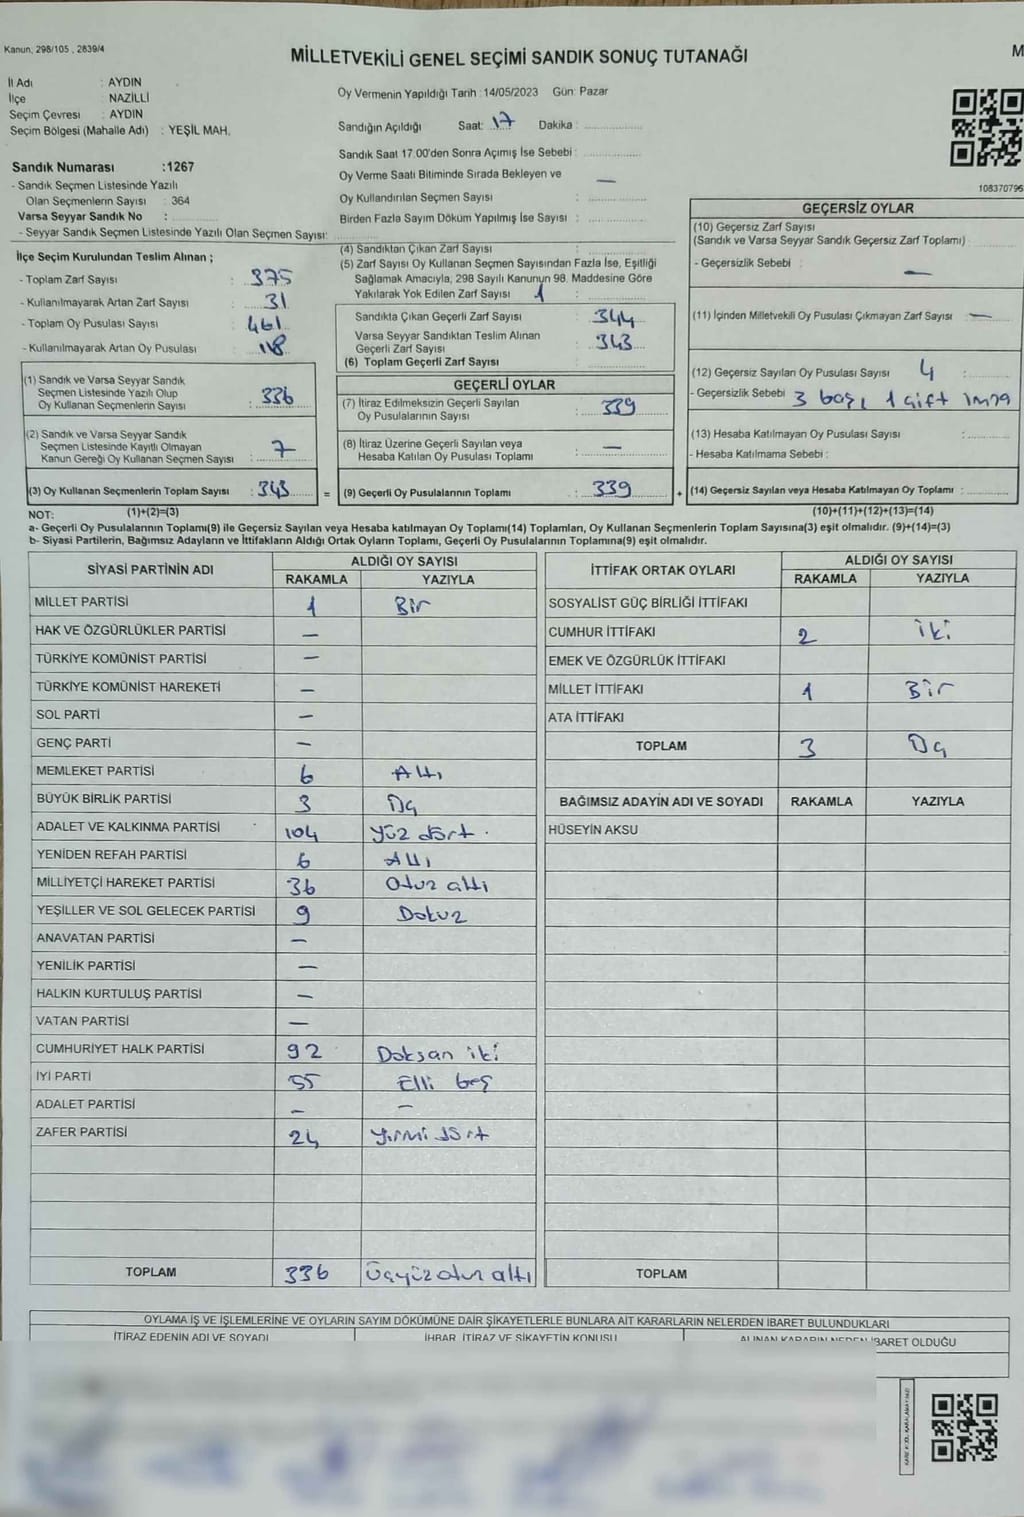 Kanun, 298/105 , 2839/4
MİLLETVEKİLİ GENEL SEÇİMİ SANDIK SONUÇ TUTANAĞI
M
İl Adı : AYDIN
İlçe NAZİLLİ
Seçim Çevresi : AYDIN
Seçim Bölgesi (Mahalle Adı) : YEŞİL MAH.
Sandık Numarası :1267
- Sandık Seçmen Listesinde Yazılı
Olan Seçmenlerin Sayısı : 364
Varsa Seyyar Sandık No :
- Seyyar Sandık Seçmen Listesinde Yazılı Olan Seçmen Sayısı:
Oy Vermenin Yapıldığı Tarih :14/05/2023 Gün: Pazar
Sandığın Açıldığı Saat: 17 Dakika :
Sandık Saat 17.00'den Sonra Açımış İse Sebebi :
Oy Verme Saati Bitiminde Sırada Bekleyen ve —
Oy Kullandırılan Seçmen Sayısı :
Birden Fazla Sayım Döküm Yapılmış İse Sayısı :
108370796
İlçe Seçim Kurulundan Teslim Alınan ;
- Toplam Zarf Sayısı : 375
- Kullanılmayarak Artan Zarf Sayısı : 31
- Toplam Oy Pusulası Sayısı : 461
- Kullanılmayarak Artan Oy Pusulası : 118
(1) Sandık ve Varsa Seyyar Sandık
Seçmen Listesinde Yazılı Olup
Oy Kullanan Seçmenlerin Sayısı : 336
(2) Sandık ve Varsa Seyyar Sandık
Seçmen Listesinde Kayıtlı Olmayan
Kanun Gereği Oy Kullanan Seçmen Sayısı : 7
(3) Oy Kullanan Seçmenlerin Toplam Sayısı : 343
(4) Sandıktan Çıkan Zarf Sayısı :
(5) Zarf Sayısı Oy Kullanan Seçmen Sayısından Fazla İse, Eşitliği
Sağlamak Amacıyla, 298 Sayılı Kanunun 98. Maddesine Göre
Yakılarak Yok Edilen Zarf Sayısı 1 :
Sandıkta Çıkan Geçerli Zarf Sayısı : 344
Varsa Seyyar Sandıktan Teslim Alınan
Geçerli Zarf Sayısı : 343
(6) Toplam Geçerli Zarf Sayısı :
GEÇERLİ OYLAR
(7) İtiraz Edilmeksizin Geçerli Sayılan
Oy Pusulalarının Sayısı : 339
(8) İtiraz Üzerine Geçerli Sayılan veya
Hesaba Katılan Oy Pusulası Toplamı : —
= (9) Geçerli Oy Pusulalarının Toplamı : 339 +
GEÇERSİZ OYLAR
(10) Geçersiz Zarf Sayısı
(Sandık ve Varsa Seyyar Sandık Geçersiz Zarf Toplamı) :
- Geçersizlik Sebebi : —
(11) İçinden Milletvekili Oy Pusulası Çıkmayan Zarf Sayısı : —
(12) Geçersiz Sayılan Oy Pusulası Sayısı 4 :
- Geçersizlik Sebebi 3 boş, 1 çift imza
(13) Hesaba Katılmayan Oy Pusulası Sayısı :
- Hesaba Katılmama Sebebi :
(14) Geçersiz Sayılan veya Hesaba Katılmayan Oy Toplamı :
NOT: (1)+(2)=(3) (10)+(11)+(12)+(13)=(14)
a- Geçerli Oy Pusulalarının Toplamı(9) ile Geçersiz Sayılan veya Hesaba katılmayan Oy Toplamı(14) Toplamları, Oy Kullanan Seçmenlerin Toplam Sayısına(3) eşit olmalıdır. (9)+(14)=(3)
b- Siyasi Partilerin, Bağımsız Adayların ve İttifakların Aldığı Ortak Oyların Toplamı, Geçerli Oy Pusulalarının Toplamına(9) eşit olmalıdır.
SİYASİ PARTİNİN ADI ALDIĞI OY SAYISI
RAKAMLA YAZIYLA
MİLLET PARTİSİ 1 Bir
HAK VE ÖZGÜRLÜKLER PARTİSİ —
TÜRKİYE KOMÜNİST PARTİSİ —
TÜRKİYE KOMÜNİST HAREKETİ —
SOL PARTİ —
GENÇ PARTİ —
MEMLEKET PARTİSİ 6 Altı
BÜYÜK BİRLİK PARTİSİ 3 Üç
ADALET VE KALKINMA PARTİSİ 104 Yüz dört
YENİDEN REFAH PARTİSİ 6 Altı
MİLLİYETÇİ HAREKET PARTİSİ 36 Otuz altı
YEŞİLLER VE SOL GELECEK PARTİSİ 9 Dokuz
ANAVATAN PARTİSİ —
YENİLİK PARTİSİ —
HALKIN KURTULUŞ PARTİSİ —
VATAN PARTİSİ —
CUMHURİYET HALK PARTİSİ 92 Doksan iki
İYİ PARTİ 55 Elli beş
ADALET PARTİSİ — —
ZAFER PARTİSİ 24 Yirmi dört
TOPLAM 336 Üçyüz otuz altı
İTTİFAK ORTAK OYLARI ALDIĞI OY SAYISI
RAKAMLA YAZIYLA
SOSYALİST GÜÇ BİRLİĞİ İTTİFAKI
CUMHUR İTTİFAKI 2 İki
EMEK VE ÖZGÜRLÜK İTTİFAKI
MİLLET İTTİFAKI 1 Bir
ATA İTTİFAKI
TOPLAM 3 Üç
BAĞIMSIZ ADAYIN ADI VE SOYADI RAKAMLA YAZIYLA
HÜSEYİN AKSU
TOPLAM
OYLAMA İŞ VE İŞLEMLERİNE VE OYLARIN SAYIM DÖKÜMÜNE DAİR ŞİKAYETLERLE BUNLARA AİT KARARLARIN NELERDEN İBARET BULUNDUKLARI
İTİRAZ EDENİN ADI VE SOYADI İHBAR, İTİRAZ VE ŞİKAYETİN KONUSU ALINAN KARARIN NEDEN İBARET OLDUĞU